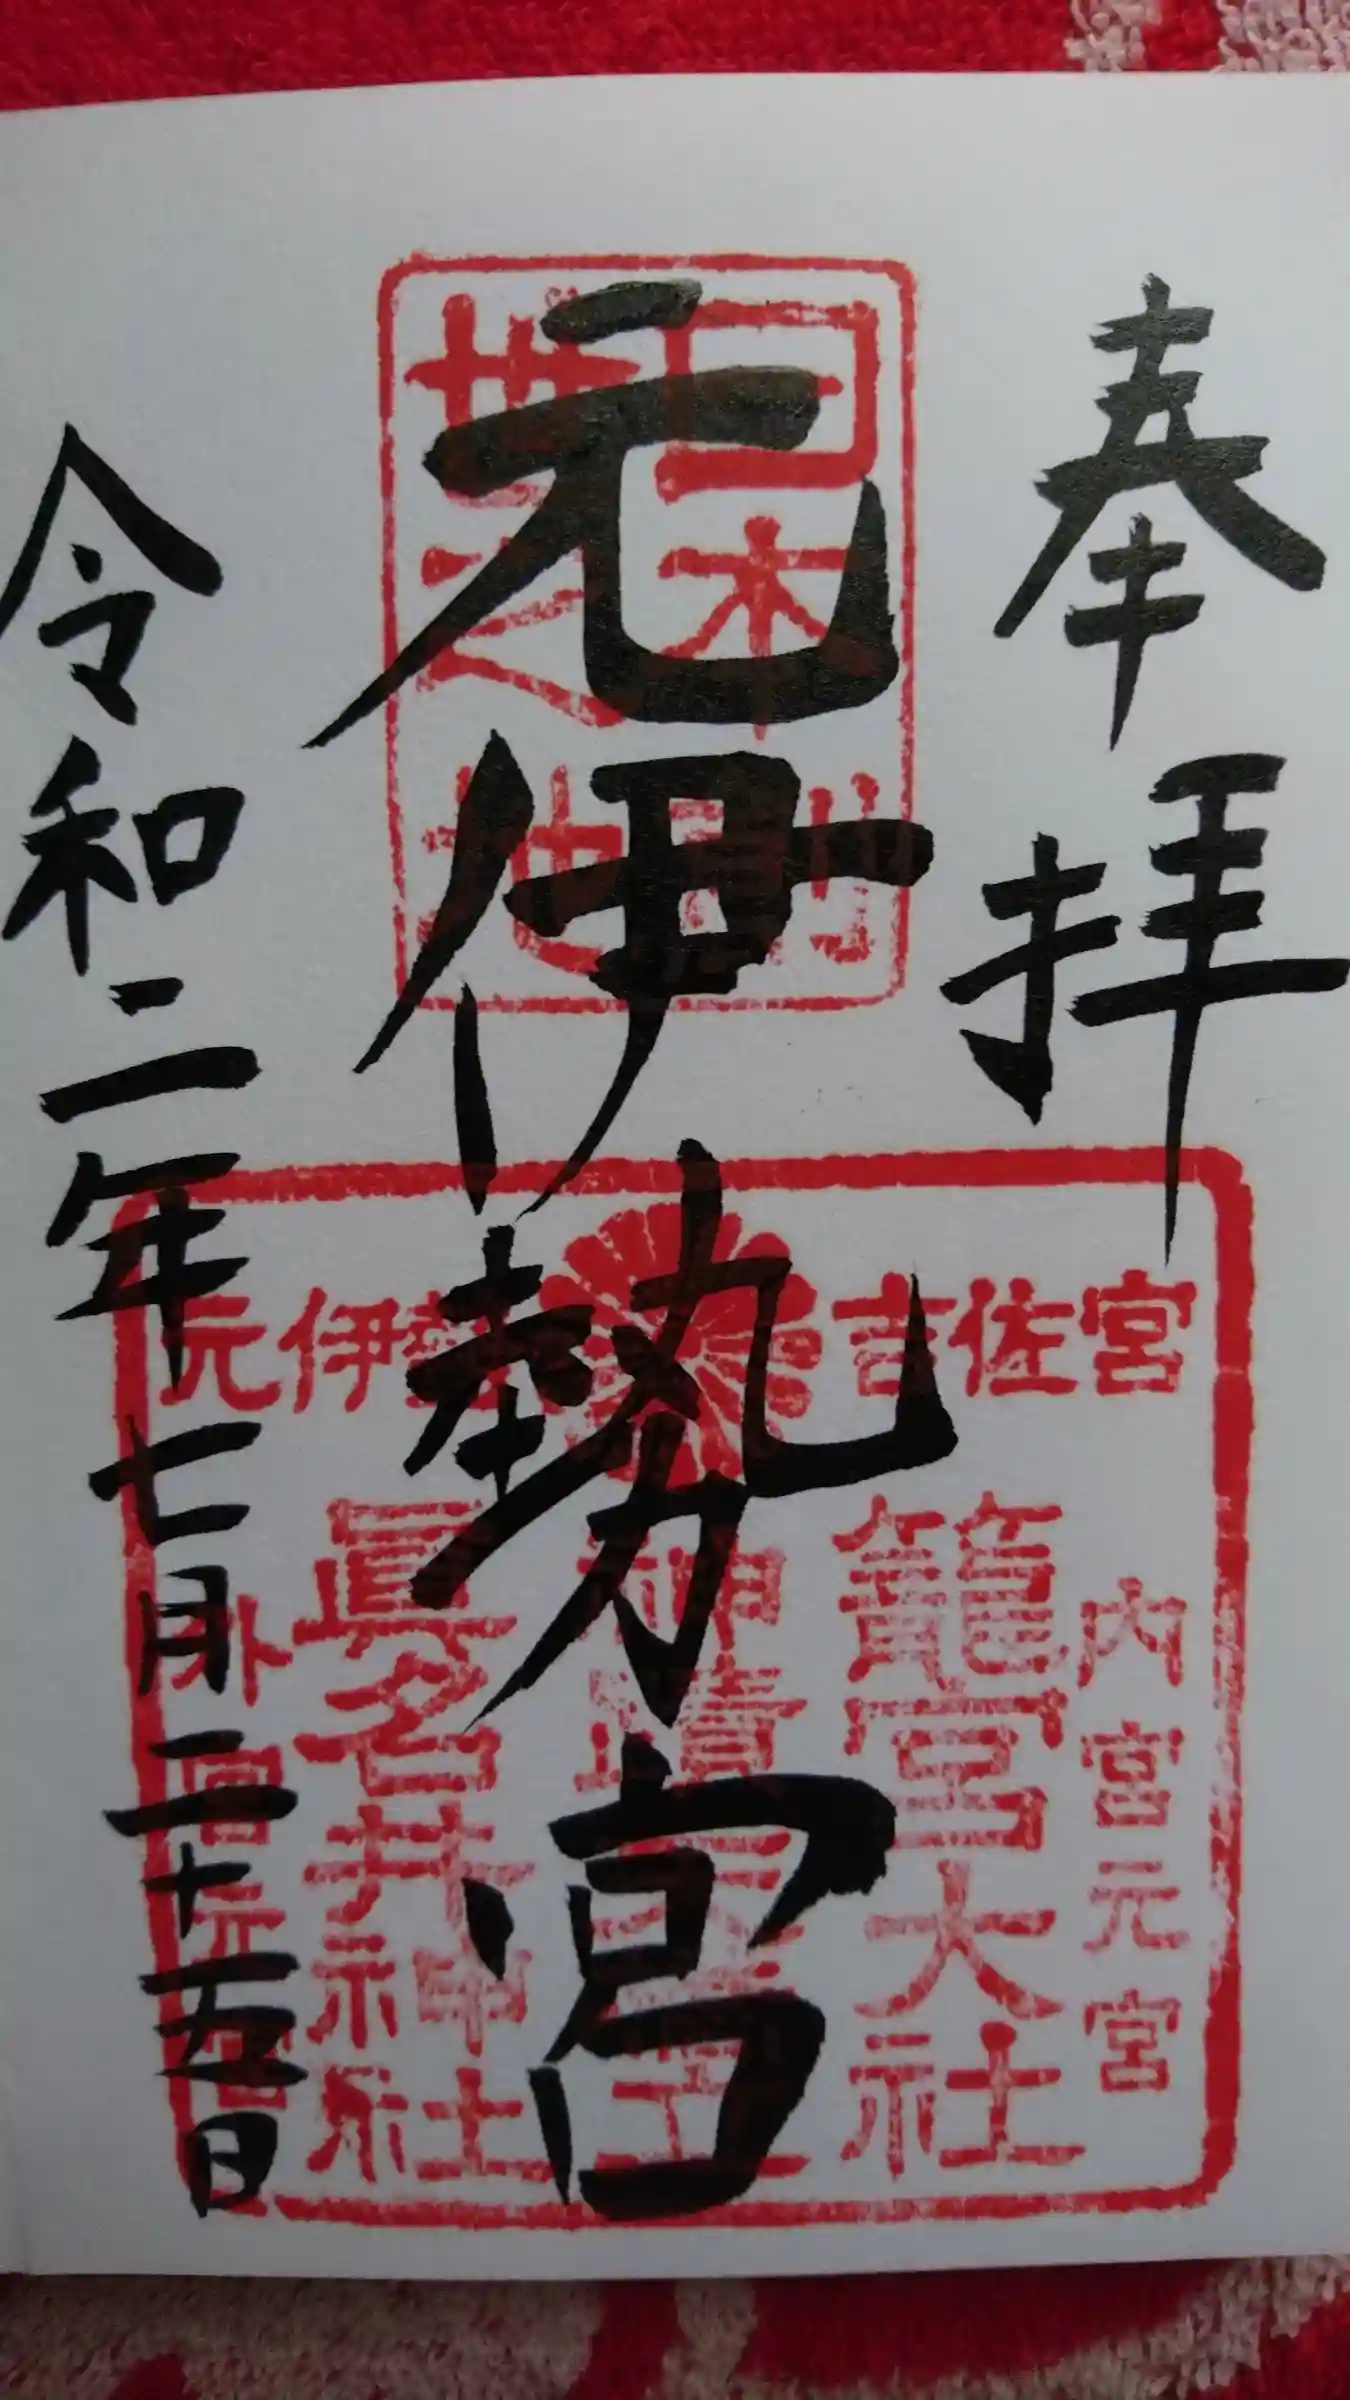 奉拝
元伊勢宮
令和二年七月二十五日
日本
世之
地
吉佐宮
元伊勢
内宮元宮
籠宮大社
眞名井神社
外宮元宮